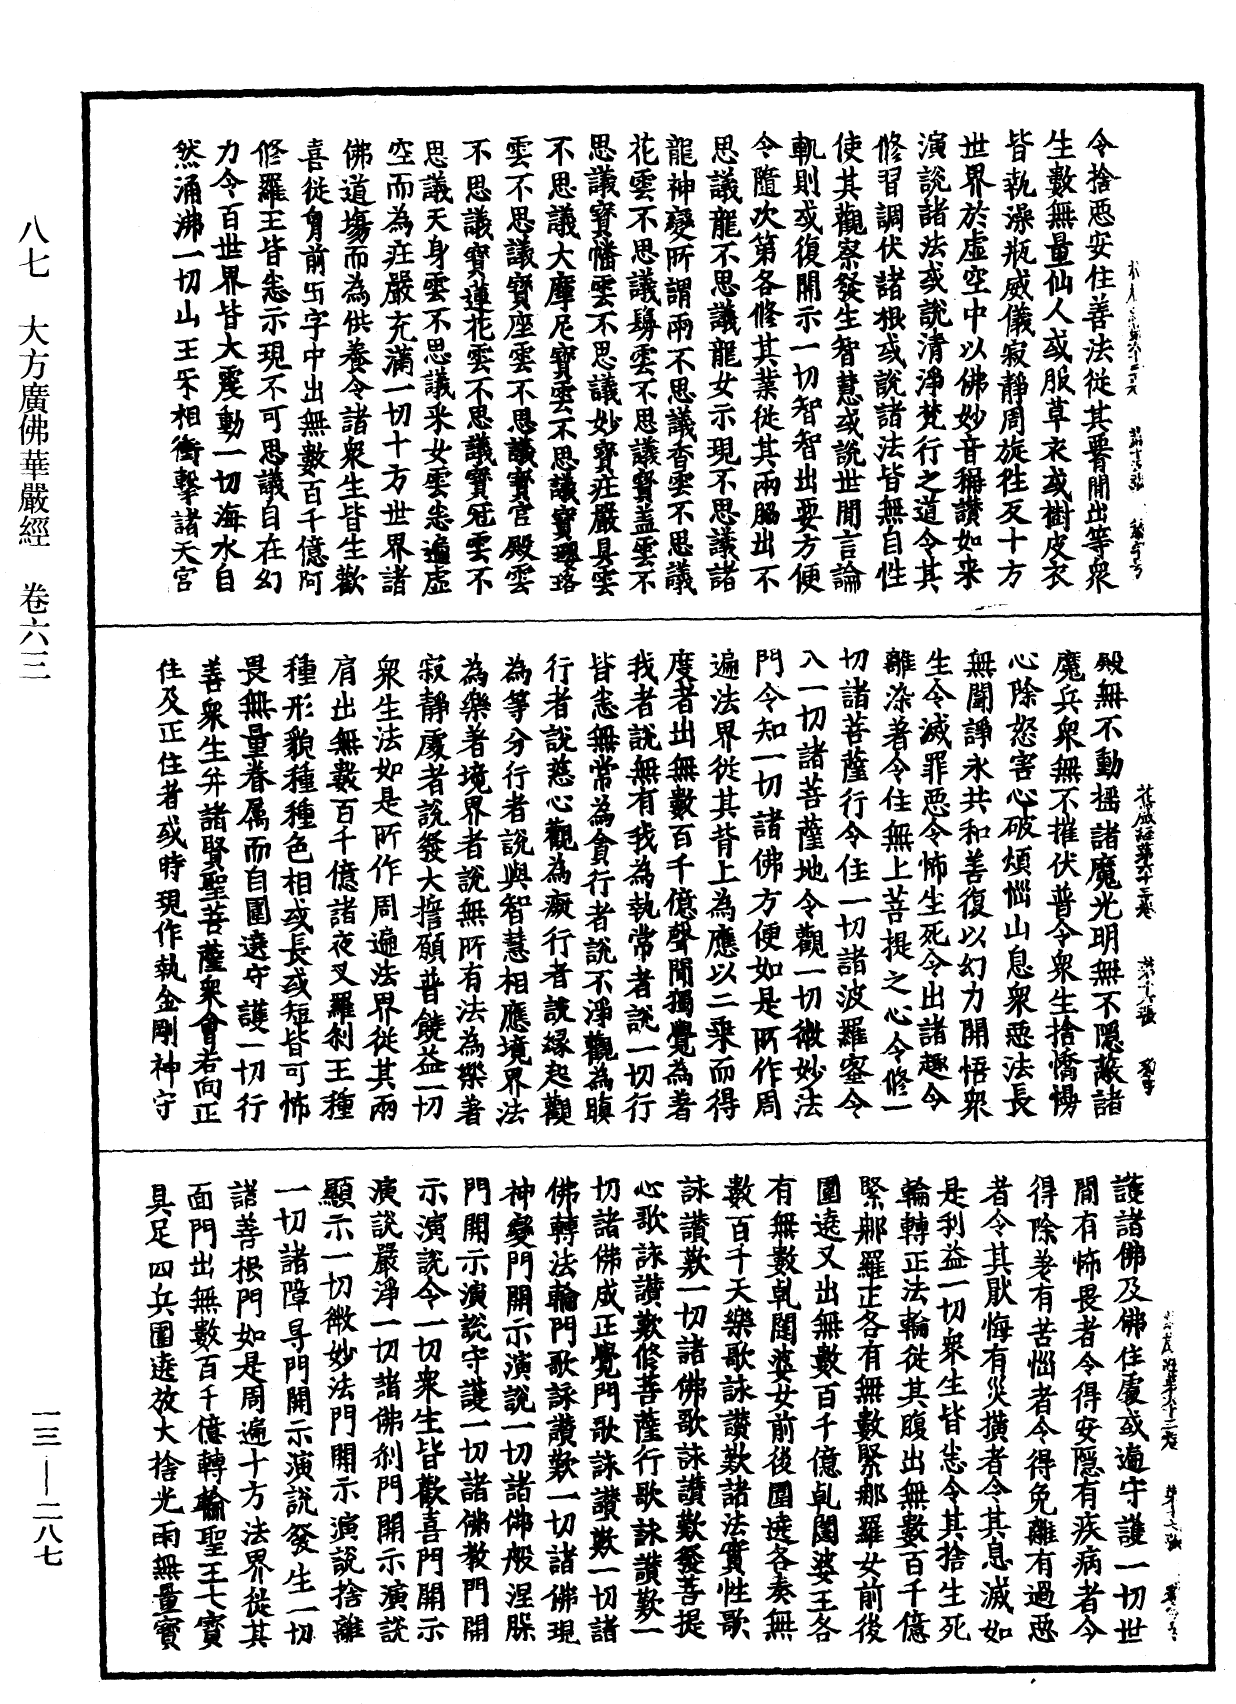 令捨惡安住善法從其䏶間出等衆
生數無量仙人或服草衣或樹皮衣
皆執澡瓶威儀寂靜周旋往反十方
世界於虛空中以佛妙音稱讚如来
演說諸法或說清淨梵行之道令其
修習調伏諸根或說諸法皆無自性
使其觀察發生智慧或說世間言論
軌則或復開示一切智智出要方便
令隨次第各修其業從其兩脇出不
思議龍不思議龍女示現不思議諸
龍神變所謂雨不思議香雲不思議
花雲不思議鬘雲不思議寶蓋雲不
思議寶幡雲不思議妙寶莊嚴具雲
不思議大摩尼寶雲不思議寶瓔珞
雲不思議寶座雲不思議寶宮殿雲
不思議寶蓮花雲不思議寶冠雲不
思議天身雲不思議采女雲悉遍虛
空而為莊嚴充滿一切十方世界諸
佛道場而為供養令諸衆生皆生歡
喜從胷前卍字中出無數百千億阿
修羅王皆悉示現不可思議自在幻
力令百世界皆大震動一切海水自
然涌沸一切山王互相衝擊諸天宮
殿無不動搖諸魔光明無不隱蔽諸
魔兵衆無不摧伏普令衆生捨憍慢
心除怒害心破煩惱山息衆惡法長
無鬪諍永共和善復以幻力開悟衆
生令滅罪惡令怖生死令出諸趣令
離染著令住無上菩提之心令修一
切諸菩薩行令住一切諸波羅蜜令
入一切諸菩薩地令觀一切微妙法
門令知一切諸佛方便如是所作周
遍法界從其背上為應以二乘而得
度者出無數百千億聲聞獨覺為著
我者說無有我為執常者說一切行
皆悉無常為貪行者說不淨觀為瞋
行者說慈心觀為癡行者說緣起觀
為等分行者說與智慧相應境界法
為樂著境界者說無所有法為樂著
寂靜處者說發大擔願普饒益一切
衆生法如是所作周遍法界從其兩
肩出無數百千億諸夜叉羅刹王種
種形貌種種色相或長或短皆可怖
畏無量眷属而自圍遶守護一切行
善衆生并諸賢聖菩薩衆會若向正
住及正住者或時現作執金剛神守
護諸佛及佛住處或遍守護一切世
間有怖畏者令得安隱有疾病者令
得除差有苦惱者令得免離有過惡
者令其猒悔有災橫者令其息滅如
是利益一切衆生皆悉令其捨生死
輪轉正法輪從其腹出無數百千億
緊那羅王各有無數緊那羅女前後
圍遶又出無數百千億乹闥婆王各
有無數乹闥婆女前後圍遶各奏無
數百千天樂歌詠讚歎諸法實性歌
詠讚歎一切諸佛歌詠讚歎發菩提
心歌詠讚歎修菩薩行歌詠讚歎一
切諸佛成正覺門歌詠讚歎一切諸
佛轉法輪門歌詠讚歎一切諸佛現
神變門開示演說一切諸佛般涅槃
門開示演說守護一切諸佛教門開
示演說令一切衆生皆歡喜門開示
演說嚴淨一切諸佛刹門開示演說
顯示一切微妙法門開示演說捨離
一切諸障㝵門開示演說發生一切
諸善根門如是周遍十方法界從其
面門出無數百千億轉輪聖王七寶
具足四兵圍遶放大捨光雨無量寶
八七 大方廣佛華嚴經 卷六三
一三—二八七